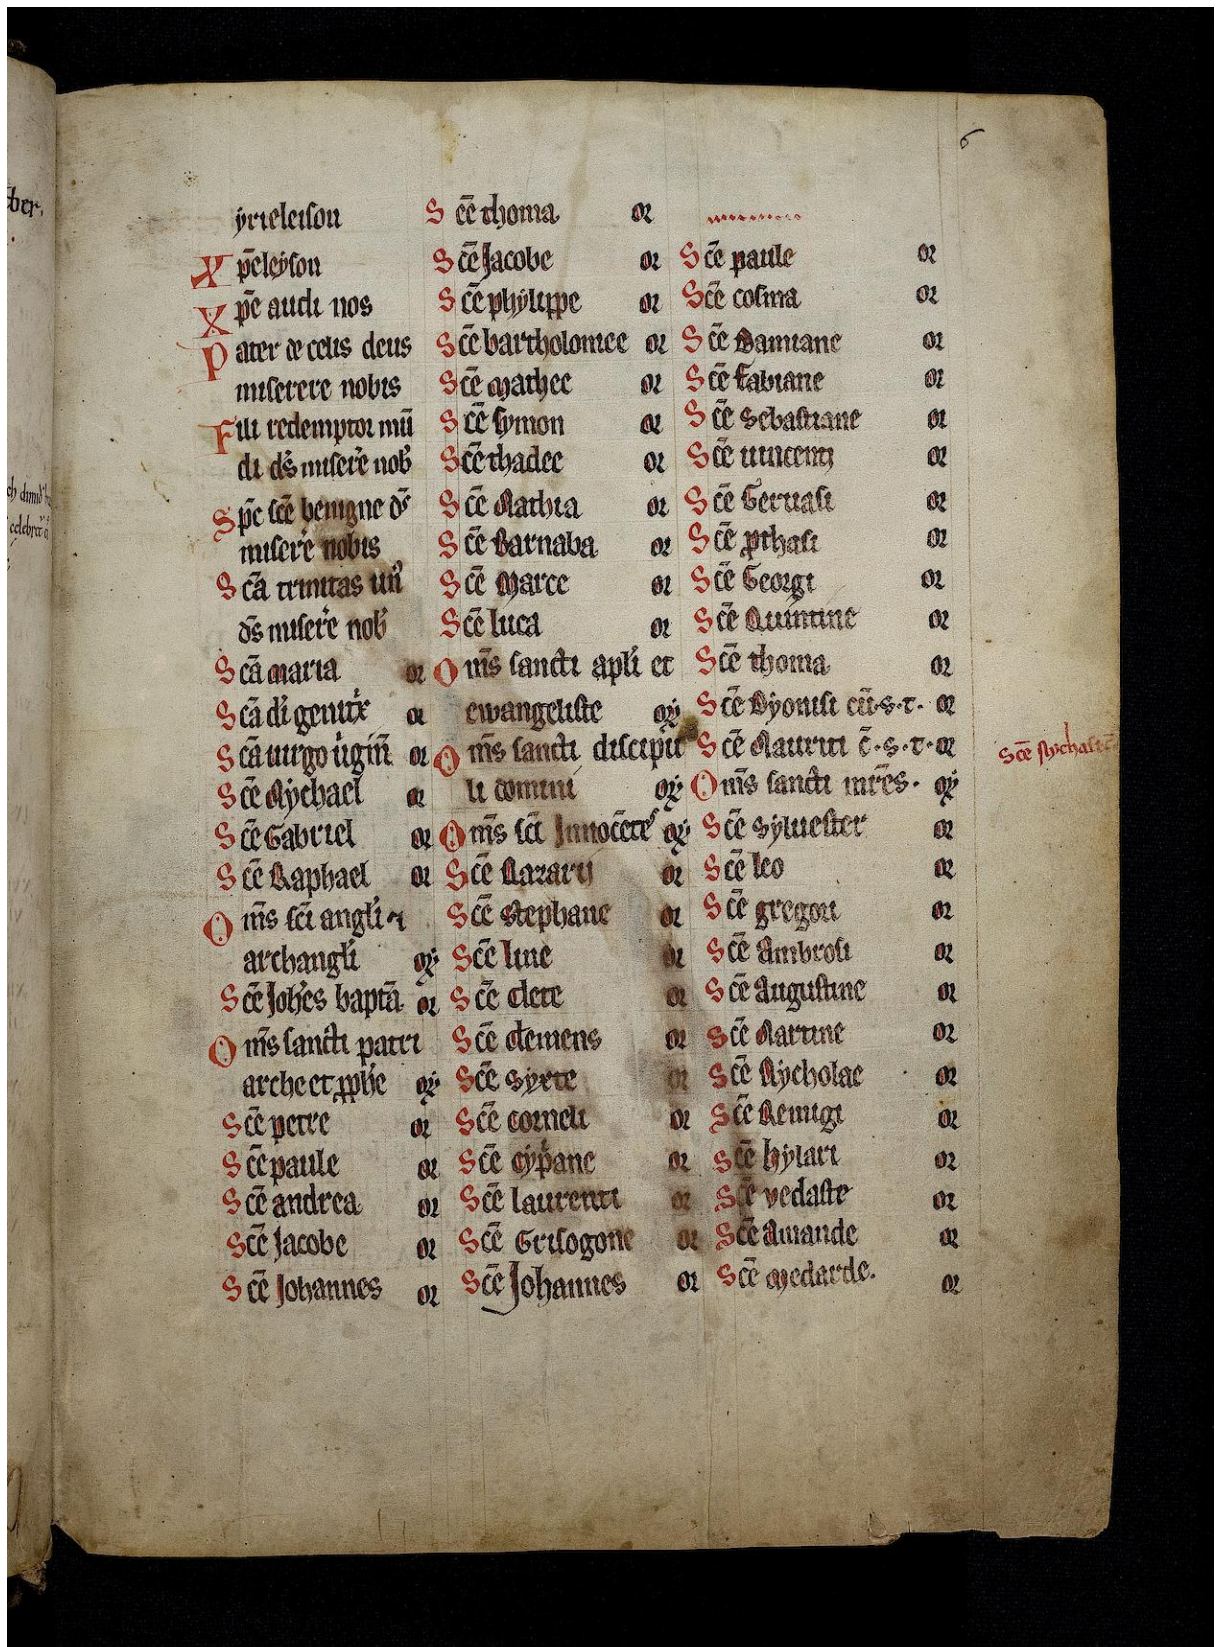 6
yrieleison
Xpēleyson
Xpē audi nos
Pater de celis deus
miserere nobis
Fili redemptor mū
di ds̄ miserē nob̄
Spc̄ scē benigne ds̄
miserē nobis
Scā trinitas un̄
ds̄ miserē nob̄
Scā maria or
Scā di genitx̄ or
Scā uirgo uḡin̄ or
Scē Mychael or
Scē Gabriel or
Scē Raphael or
Om̄s scī angli ⁊
archangli orͣ
Scē Joh̄es baptā or
Om̄s sancti patri
arche et pph̄e orͣ
Scē petre or
Scē paule or
Scē andrea or
Scē Jacobe or
Scē Johannes or
Scē thoma or
Scē Jacobe or
Scē phylippe or
Scē bartholomee or
Scē Mathee or
Scē symon or
Scē thadee or
Scē Mathia or
Scē Barnaba or
Scē Marce or
Scē luca or
Om̄s sancti apli et
ewangeliste orͣ
Om̄s sancti discipu
li domini orͣ
Om̄s scī Innocētes orͣ
Scē Nazarij or
Scē Stephane or
Scē line or
Scē clete or
Scē clemens or
Scē Syxte or
Scē corneli or
Scē cyp̄ane or
Scē laurenti or
Scē Grisogone or
Scē Johannes or
Scē paule or
Scē cosma or
Scē Damiane or
Scē fabiane or
Scē Sebastiane or
Scē uincenti or
Scē Geruasi or
Scē ꝓthasi or
Scē Georgi or
Scē Quintine or
Scē thoma or
Scē Dyonisi cū·s·t· or
Scē Mauriti c̄·s·t· or
Om̄s sancti mr̄es· orͣ
Scē Syluester or
Scē leo or
Scē gregori or
Scē Ambrosi or
Scē Augustine or
Scē Martine or
Scē Nycholae or
Scē Remigi or
Scē hylari or
Scē vedaste or
Scē Amande or
Scē Medarde. or